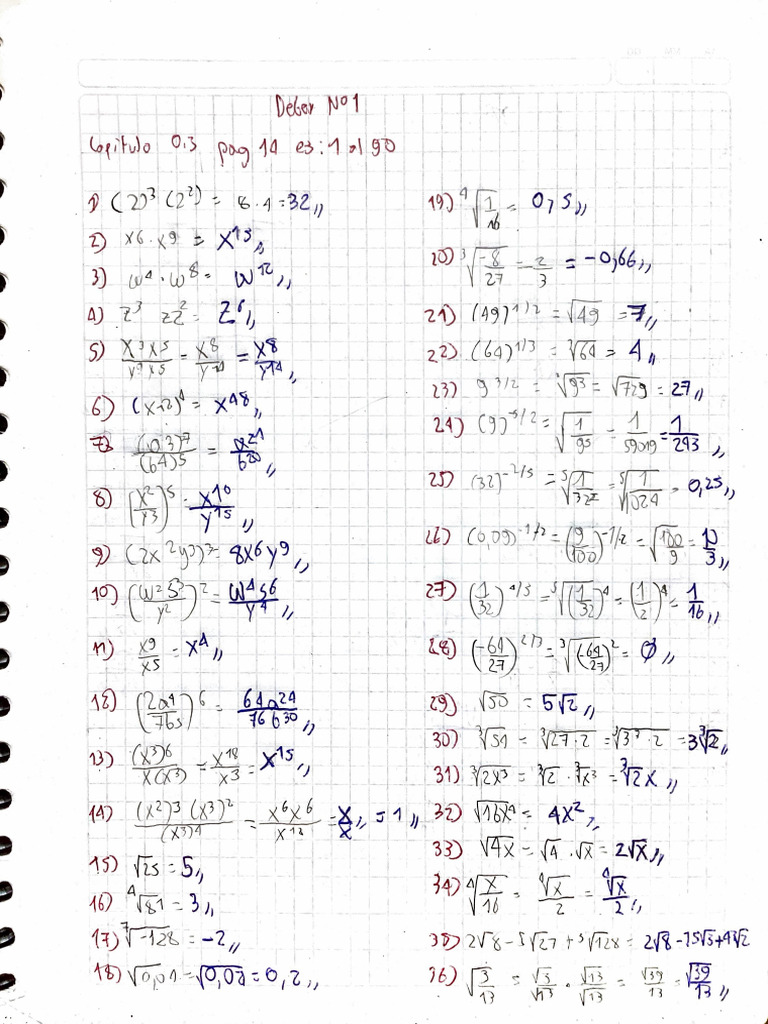 Deber Nº1
Capitulo 0.3 pag 14 es: 1 al 90
1) (2)³ (2²) = 8 · 4 = 32,,
2) x6 · x9 = x¹⁵,,
3) ω⁴ · ω⁸ = ω¹²,,
4) z³ z z² = z⁶,,
5) x³x5/y⁹y5 = x⁸/y¹⁴ = x8/y¹⁴,,
6) (x12)⁴ = x⁴⁸,,
8) (x²/y3)⁵ = x¹⁰/y¹⁵,,
9) (2x²y3)³ = 8x⁶y⁹,,
10) (ω²s³/y²)² = ω⁴s⁶/y⁴,,
11) x9/x5 = x⁴,,
12) (2a4/7b5)⁶ = 64a²⁴/7⁶b³⁰,,
13) (x³)⁶/x(x³) = x¹⁸/x³ = x¹⁵,,
14) (x²)³ (x³)²/(x³)⁴ = x⁶x⁶/x¹² = x/x,, = 1,,
15) √25 = 5,,
16) ⁴√81 = 3,,
17) ⁷√-128 = -2,,
18) √0,04 = √0,04 = 0,2,,
19) ⁴√1/16 = 0,5,,
20) ³√-8/27 = -2/3 = -0,66,,
21) (49)¹/² = √49 = 7,,
22) (64)¹/³ = ³√64 = 4,,
23) 9³/² = √93 = √729 = 27,,
24) (9)⁻⁵/² = √1/95 = 1/59049 = 1/243,,
25) (32)⁻²/⁵ = ⁵√1/32² = ⁵√1/1024 = 0,25,,
26) (0,09)⁻¹/² = (9/100)⁻¹/² = √100/9 = 10/3,,
27) (1/32)⁴/⁵ = ⁵√(1/32)⁴ = (1/2)⁴ = 1/16,,
28) (-64/27)²/³ = ³√(-64/27)² = Ø,,
29) √50 = 5√2,,
30) ³√54 = ³√27·2 = ³√3³·2 = 3³√2,,
31) ³√2x³ = ³√2 · ³√x³ = ³√2x,,
32) √16x⁴ = 4x²,,
33) √4x = √4 · √x = 2√x,,
34) ⁴√x/16 = ⁴√x/2 = ⁴√x/2,,
35) 2√8 - 5√27 + ³√128 = 2√8 - 15√3 + 4³√2
36) √3/13 = √3/√13 · √13/√13 = √39/13 = √39/13,,